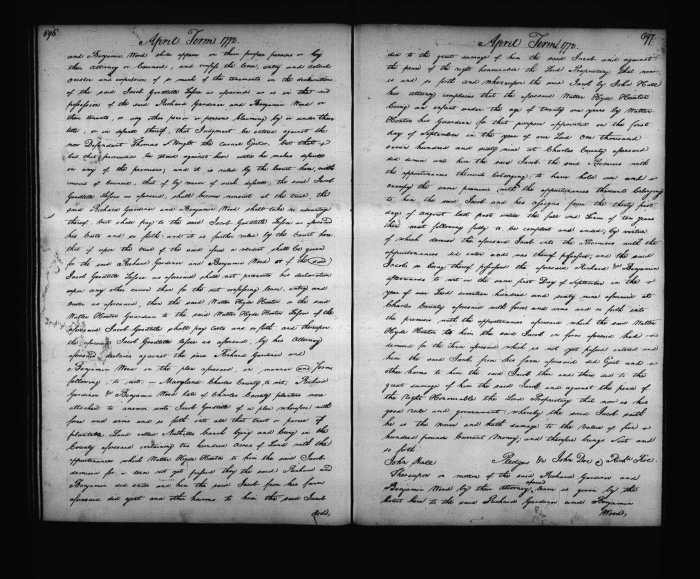 696
April Term 1770.
and Benjamin Wood shall appear in their proper persons or by
their Attorney or Counsel, and confess the lease, entry and actual
ouster and expulsion of so much of the tenements in the declaration
of the said Jacob Goodtitle Lessee as aforesaid as is in the
possession of the said Richard Gardiner and Benjamin Wood or
their tenants, or any other person or persons claiming by or under their
title, or in default thereof, that Judgment be entered against the
now Defendant Thomas Nought the casual Ejector. But that
be stand against him until he makes default
in any of the premises; and it is ruled by the Court here, with
consent of Counsel, that if by reason of such default, the said Jacob
Goodtitle lessee as aforesaid, shall become nonsuit at the trial, the
said Richard Gardiner and Benjamin Wood shall take no advantage
thereof. But shall pay to the said Jacob Goodtitle Lessee as aforesaid
his Costs and so forth; and it is further ruled by the Court here
that if upon the trial of the said issue a verdict shall be given
for the said Richard Gardiner and Benjamin Wood or if the said
Jacob Goodtitle Lessee as aforesaid shall not prosecute his declaration
upon any other cause than for the not confessing lease, entry and
ouster as aforesaid, then the said Walter Hyde Hunter or the said
Walter Hunter Guardian to the said Walter Hyde Hunter Lessor of the
aforesaid Jacob Goodtitle shall pay costs and so forth and thereupon
the aforesaid Jacob Goodtitle lessee as aforesaid, by his Attorney
aforesaid declares against the said Richard Gardiner and
Benjamin Wood in the plea aforesaid in manner and form
following; to wit; — Maryland Charles County to wit; Richard
Gardiner & Benjamin Wood late of Charles County planters were
attached to answer unto Jacob Goodtitle of a plea wherefore with
force and arms and so forth into all that tract or parcel of
Land called lying and being in the
County aforesaid containing two hundred Acres of Land with the
appurtenances which Walter Hyde Hunter to him the said Jacob
demised for a term not yet passed they the said Richard and
Benjamin did enter and him the said Jacob from his farm
aforesaid did eject and other harms to him the said Jacob
did,
697
April Term 1770.
did to the great damage of him the said Jacob and against
the peace of the right honourable the Lord Proprietary that now
is and so forth and whereupon the said Jacob by John Hall
his attorney complains that the aforesaid Walter Hyde Hunter
being an infant under the age of twenty one years by Walter
Hunter his Guardian for that purpose appointed on the first
day of September in the year of our Lord one thousand
seven hundred and sixty nine at Charles County aforesaid
did demise unto him the said Jacob the said Premises with
the appurtenances thereunto belonging, to have hold use and
occupy the same premises with the appurtenances thereunto belonging
to him the said Jacob and his assigns from the thirty first
day of August last past until the full end Term of ten years
then next following fully to be compleat and ended; by virtue
of which demise the aforesaid Jacob into the Premises with the
appurtenances did enter and was thereof possessed; and the said
Jacob so being thereof possessed the aforesaid Richard & Benjamin
afterwards to wit on the same first Day of September in the
year of our Lord seventeen hundred and sixty nine aforesaid at
Charles County aforesaid with force and arms and so forth into
the premises with the appurtenances aforesaid which the said Walter
Hyde Hunter to him the said Jacob in form aforesaid had
demised for the Term aforesaid, which is not yet passed entered and
him the said Jacob from his farm aforesaid did Eject and
other harms to him the said Jacob then and there did to the
great damage of him the said Jacob and against the peace of
the Right Honourable the Lord Proprietary that now is his
good rule and government; whereby the said Jacob saith
he is the worse and hath damage to the value of five
hundred pounds Current Money; and therefore brings suit and
so forth
John Hall Pledges &c John Doe & Richd. Roe.
Thereupon on motion of the said Richard Gardiner and
Benjamin Wood by their attorney aforesd leave is given by the
Court here to the said Richard Gardiner and Benjamin
Wood,